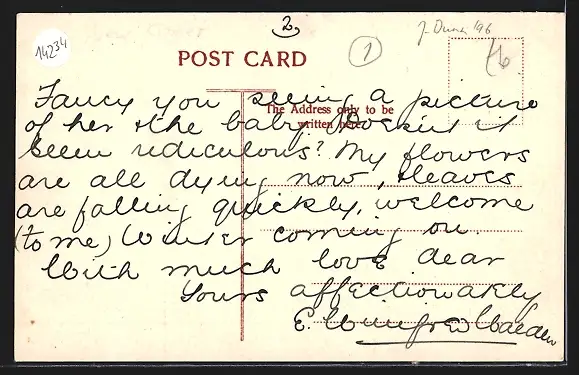 2
14234
1
J-Dunn '96
POST CARD
The Address only to be
written here.
Fancy you seeing a picture
of her & the baby, Doesnt it
seem ridiculous? My flowers
are all dying now, & leaves
are falling quickly, welcome
(to me) Winter coming on.
With much love dear
Yours affectionately
E. Winifred